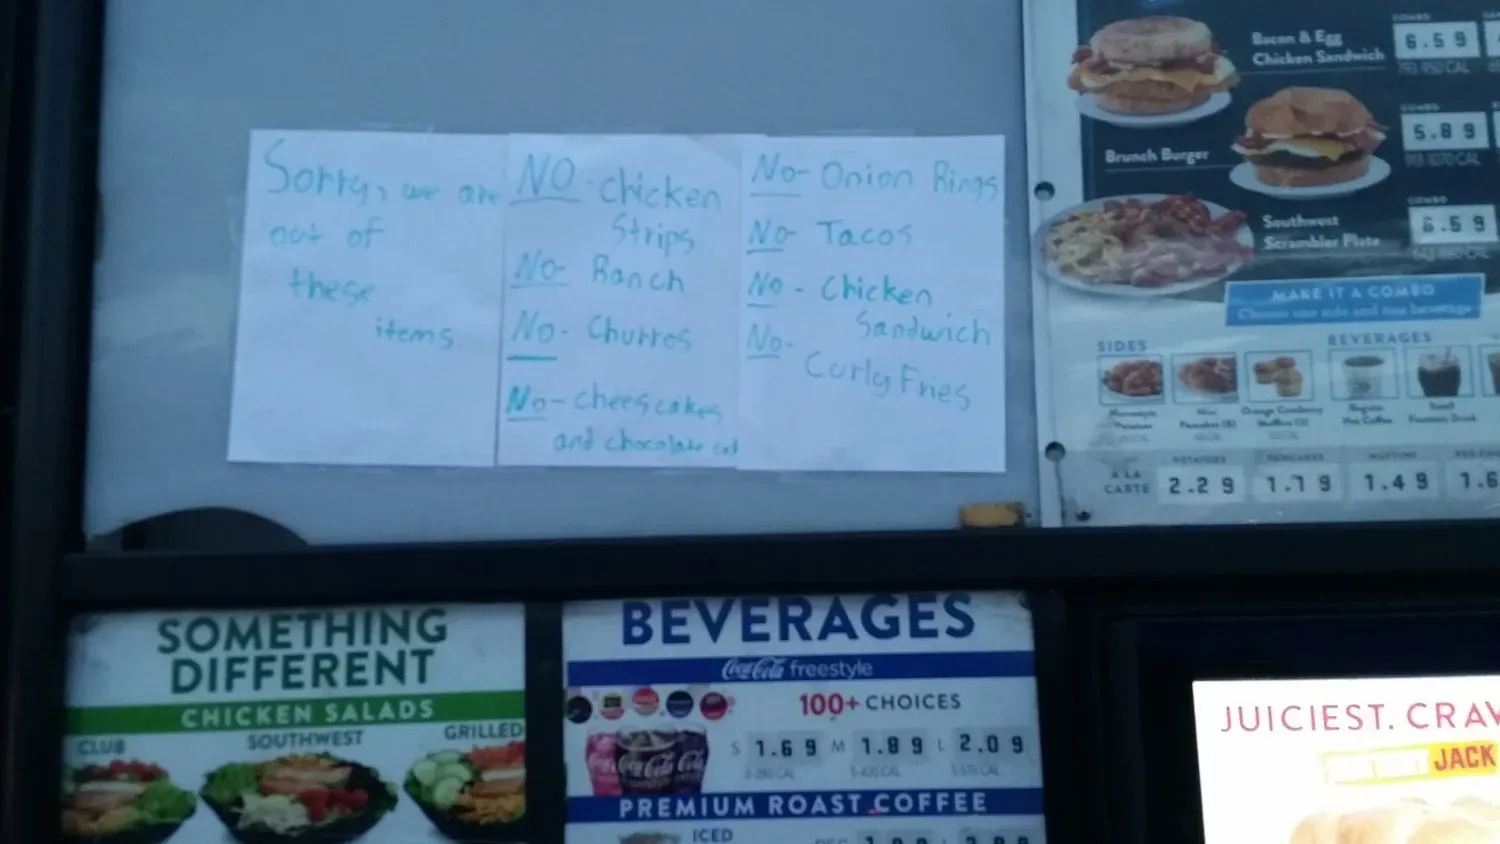 Sorry, we are
out of
these
items.
NO - chicken
Strips
No- Ranch
No- Churros
No- cheescakes
and chocolate
No- Onion Rings
No- Tacos
No - Chicken
Sandwich
No-
Curly Fries
Bacon & Egg
Chicken Sandwich
COMBO
6.59
Brunch Burger
COMBO
5.89
Southwest
Scrambler Plate
COMBO
6.59
MAKE IT A COMBO
Choose one side and one beverage
SIDES
BEVERAGES
A LA
CARTE
2.29
1.79
1.49
1.6
SOMETHING
DIFFERENT
CHICKEN SALADS
CLUB
SOUTHWEST
GRILLED
BEVERAGES
Coca-Cola freestyle
100+ CHOICES
S 1.69 M 1.89 L 2.09
PREMIUM ROAST COFFEE
ICED
JUICIEST. CRAV
JACK